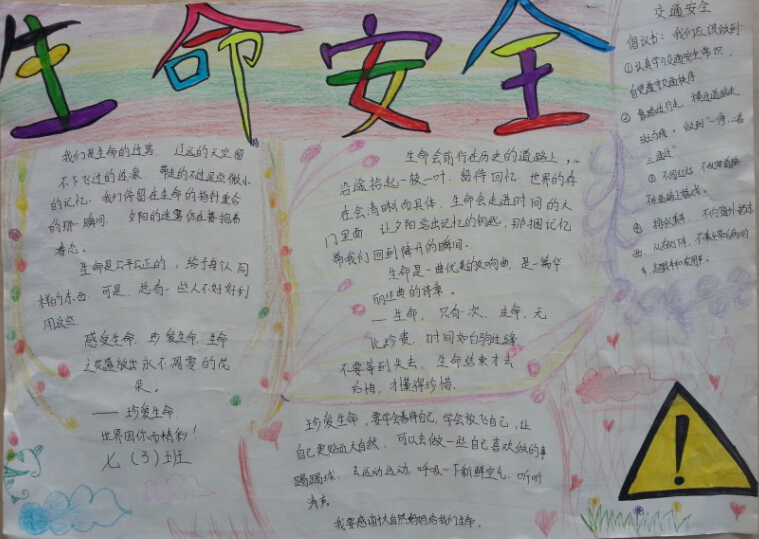 生命安全
我们是生命的过客，过远的天空留
不下飞过的痕迹，带走的不过是些微小
的记忆，我们停留在生命的指针重合
的那一瞬间，夕阳的迷雾仿在要抱着
春恋。
生命是公平公正的，给予每认同
样的东西，可是，总有一些人不好好利
用这些
感受生命，珍爱生命，生命
之花盛放出永不凋零的花
朵。
—— 珍爱生命，
世界因你而精彩！
七（3）班
生命会前行在历史的道路上，
沿途拾起一枚一叶，留待回忆，世界的存
在会清晰而具体，生命会走进时间的大
门里面，让夕阳
记忆的
，那捆记忆
帮我们回到降升的瞬间。
生命是一曲优美的交响曲，是一篇华
丽经典的诗章。
—— 生命，只有一次，生命，无
比珍贵，时间如白驹过隙
不要等到失去，生命结束才去
后悔，才懂得珍惜。
珍爱生命，要学会善待自己，学会放飞自己，让
自己更贴近大自然，可以去做一些自己喜欢做的事
踢踢球，去运动运动，呼吸一下新鲜空气，听听
涛声
我要感谢大自然妈妈给我们生命。
交通安全
倡议书：我们应该做到：
①认真学习交通安全常识，
自觉遵守交通秩序
②靠路边行走，横过道路走
斑马线，做到“一停，二看
三通过”
③不闯红灯，不
道路
④排队乘车，不向窗外抛东
西，